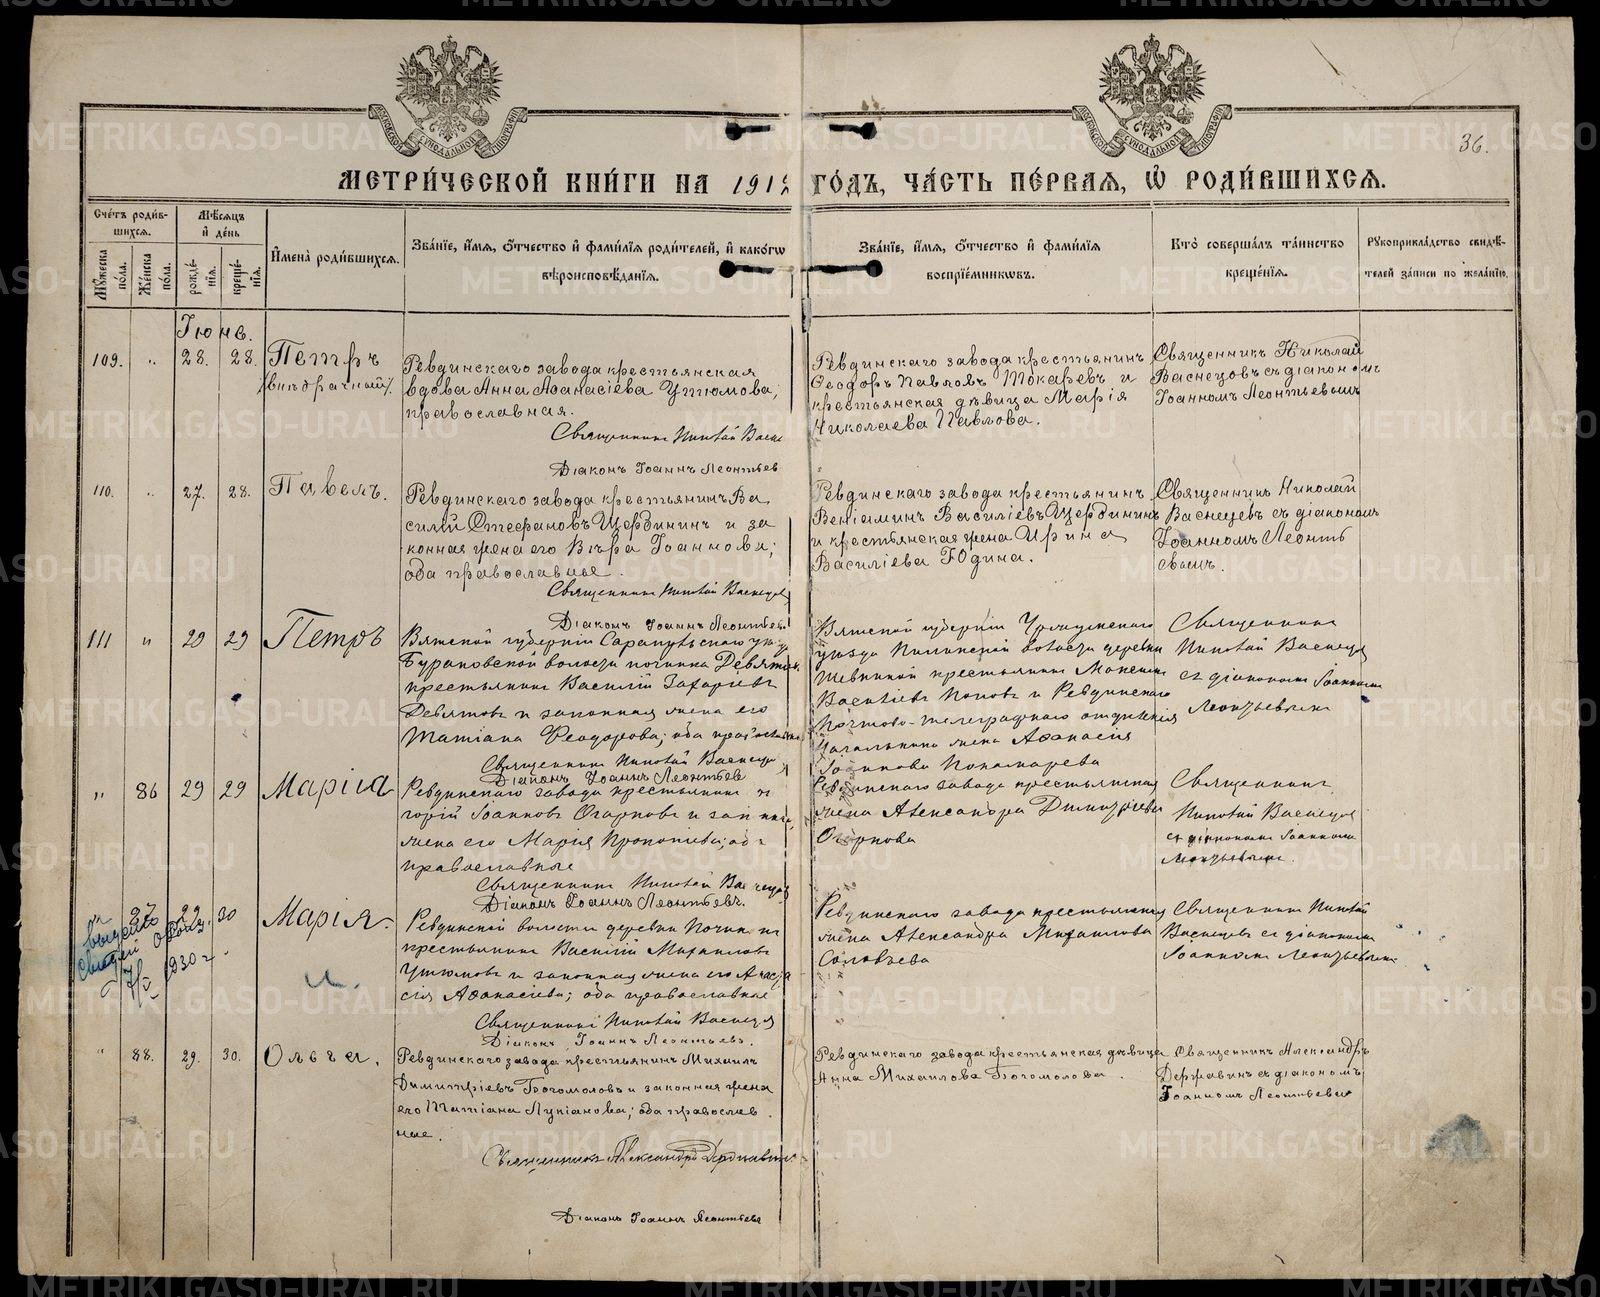 МОСКОВСКОЙ СѴНОДАЛЬНОЙ ТИПОГРАФІИ
МОСКОВСКОЙ СѴНОДАЛЬНОЙ ТИПОГРАФІИ
36.
МЕТРИ́ЧЕСКОЙ КНИ́ГИ НА 1912 ГО́ДЪ, ЧА́СТЬ ПЕ́РВАЯ, Ѡ҆ РОДИ́ВШИХСЯ.
Сче́тъ роди́в-
шихся.
Мѣ́сяцъ
и҆ де́нь
Мꙋ́жеска по́ла.
Же́нска по́ла.
рожде́-нїя.
креще́-нїя.
И҆мена̀ роди́вшихся.
Зва́нїе, и҆́мя, ѻ҆́тчество и҆ фами́лїя роди́телей, и҆ како́гѡ
вѣроисповѣ́данїя.
Зва́нїе, и҆́мя, ѻ҆́тчество и҆ фами́лїя
воспрїе́мникѡвъ.
Кто̀ соверша́лъ та́инство
креще́нїя.
Рꙋкоприкла́дство свидѣ́-
телей за́писи по жела́нїю.
Іюнь.
109. " 28. 28. Петръ
(внѣбрачный).
Ревдинскаго завода крестьянская
вдова Анна Аѳанасіева Утюмова,
православная.
Священникъ Николай Васне
Діаконъ Іоаннъ Леонтьев
Ревдинскаго завода крестьянинъ
Ѳеодоръ Павловъ Токаревъ и
крестьянская дѣвица Марія
Николаева Павлова.
Священникъ Николай
Васнецовъ съ діакономъ
Іоанномъ Леонтьевымъ
110. " 27. 28. Павелъ.
Ревдинскаго завода крестьянинъ Ва
силій Стефановъ Щербининъ и за
конная жена его Вѣра Іоаннова;
оба православные.
Священникъ Николай Васнецов
Діаконъ Іоаннъ Леонтьев
Ревдинскаго завода крестьянинъ
Веніаминъ Василіевъ Щербининъ
и крестьянская жена Ирина
Василіева Юдина.
Священникъ Николай
Васнецовъ съ діакономъ
Іоанномъ Леонть
евымъ.
111 " 29 29 Петръ
Вятской губерніи Сарапульскаго уѣзда
Бурановской волости починка Девятова
крестьянинъ Василій Захаріевъ
Девятовъ и законная жена его
Татіана Ѳеодорова; оба православн
Священникъ Николай Васнецов
Діаконъ Іоаннъ Леонтьев
Вятской губерніи Уржумскаго
уѣзда волости деревни
крестьянинъ
Василіевъ Поповъ и Ревдинскаго
почтово-телеграфнаго отдѣленія
Начальника жена Аѳанасія
Іоаннова Пономарева
Священникъ
Николай Васнецов
съ діакономъ Іоанномъ
Леонтьевымъ
" 86 29 29 Марія
Ревдинскаго завода крестьянинъ
Іоанновъ Огарковъ и законная
жена его Марія Прокопіева; оба
православные
Священникъ Николай Васнецов
Діаконъ Іоаннъ Леонтьевъ.
Ревдинскаго завода крестьянская
жена Александра Димитріева
Огаркова
Священникъ
Николай Васнецов
съ діакономъ Іоанномъ
Леонтьевымъ.
" 87 29 30 Марія.
1930 г.
Ревдинской волости деревни
крестьянинъ Василій Михаиловъ
Утюмовъ и законная жена его Анаста
сія Аѳанасіева; оба православные
Священникъ Николай Васнецов
Діаконъ Іоаннъ Леонтьевъ.
Ревдинскаго завода крестьянская
жена Александра Михаилова
Соловьева
Священникъ Николай
Васнецовъ съ діакономъ
Іоанномъ Леонтьевымъ
" 88. 29. 30. Ольга.
Ревдинскаго завода крестьянинъ Михаилъ
Димитріевъ Богомоловъ и законная жена
его Татіана Лукіанова; оба православ
ные.
Священникъ Александръ Державинъ
Діаконъ Іоаннъ Леонтьевъ
Ревдинскаго завода крестьянская дѣвица
Анна Михаилова Богомолова.
Священникъ Александръ
Державинъ съ діакономъ
Іоанномъ Леонтьевымъ
METRIKI.GASO-URAL.RU